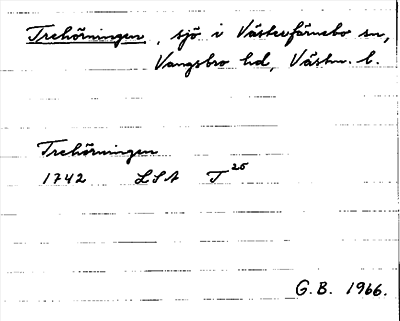 Trehörningen, sjö i Västerfärnebo sn,
Vangsbro hd, Västm. l.
Trehörningen
1742 LSA T 25
G.B. 1966.